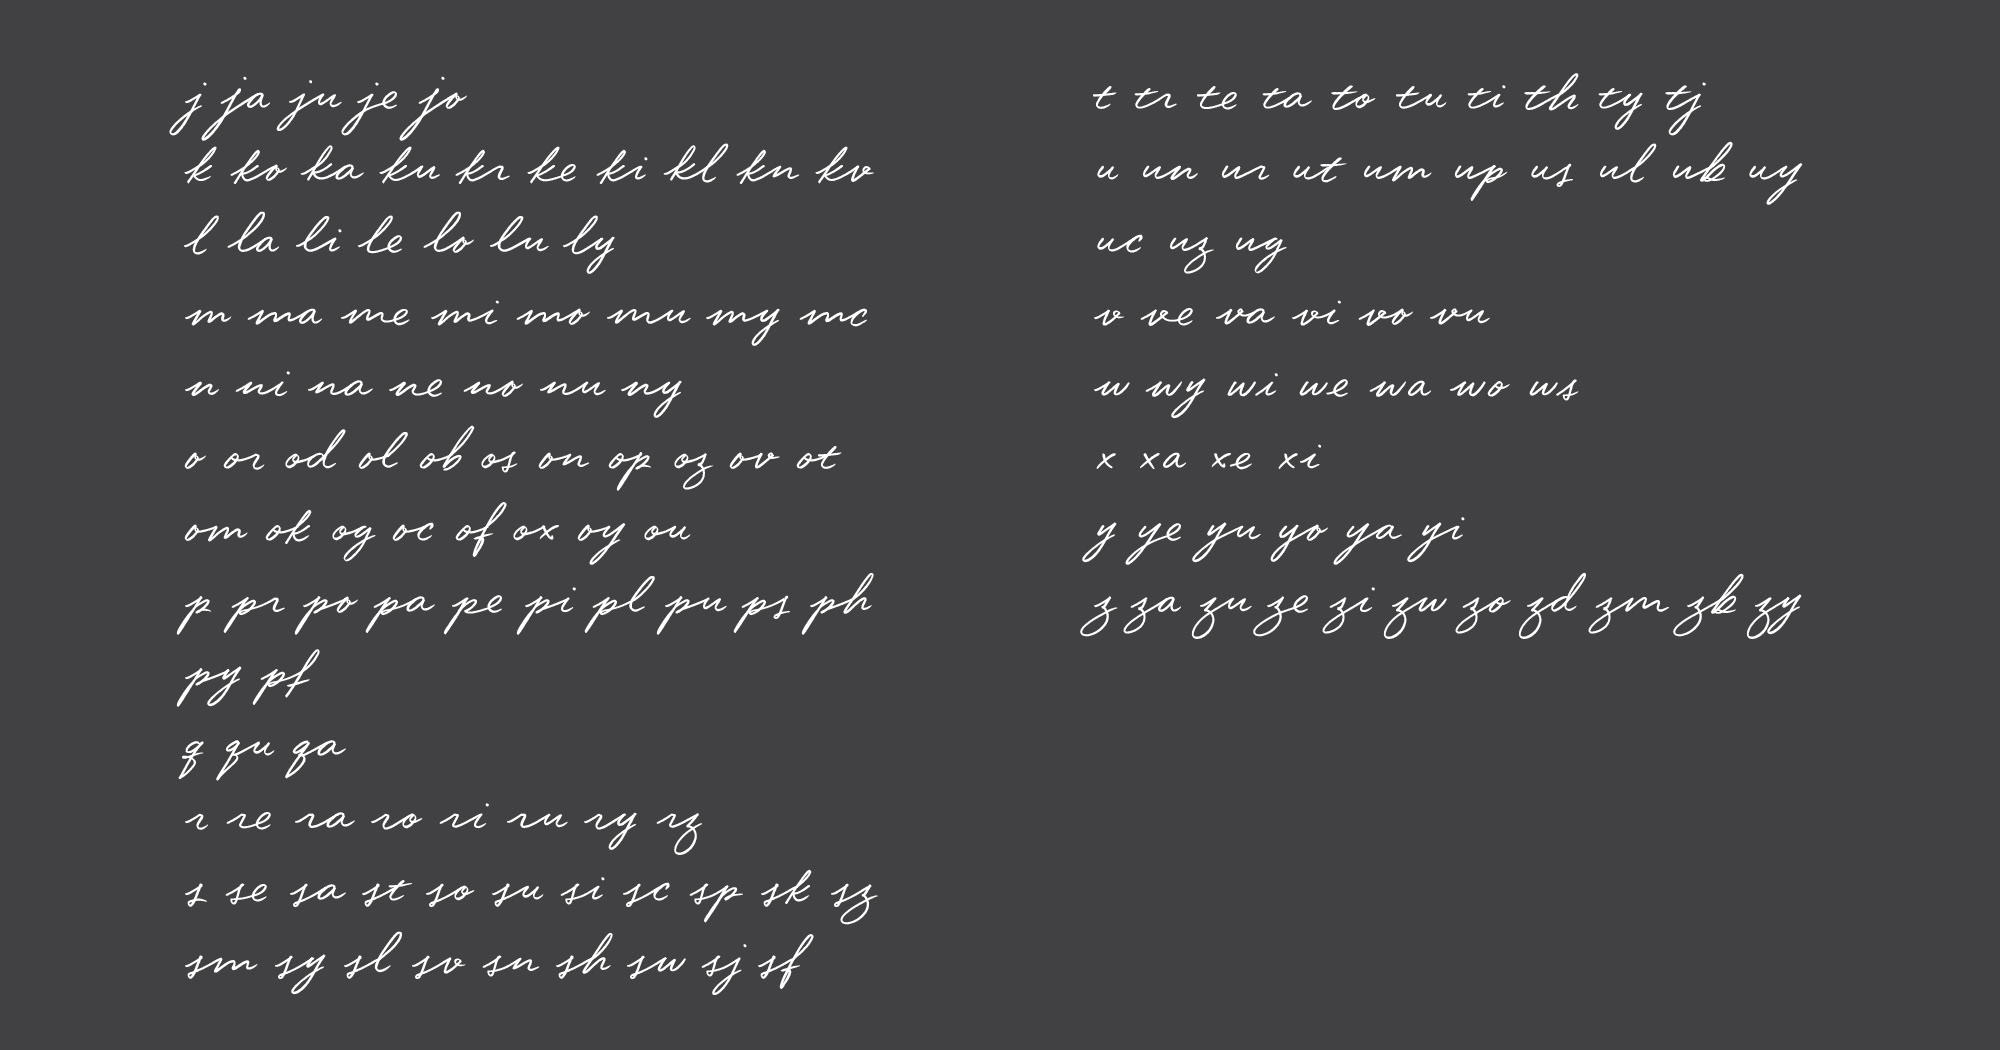 j ja ju je jo
k ko ka ku kr ke ki kl kn kv
l la li le lo lu ly
m ma me mi mo mu my mc
n ni na ne no nu ny
o or od ol ob os on op oz ov ot
om ok og oc of ox oy ou
p pr po pa pe pi pl pu ps ph
py pf
q qu qa
r re ra ro ri ru ry rz
s se sa st so su si sc sp sk sz
sm sy sl sv sn sh sw sj sf
t tr te ta to tu ti th ty tj
u un ur ut um up us ul ub uy
uc uz ug
v ve va vi vo vu
w wy wi we wa wo ws
x xa xe xi
y ye yu yo ya yi
z za zu ze zi zw zo zd zm zb zy